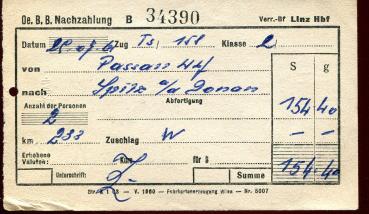 Oe. B. B. Nachzahlung B 34390 Verr.-Bf Linz Hbf
Datum Zug Ts/ 158 Klasse 2
von Passau Hbf S g
nach Spitz a/d Donau
Anzahl der Personen Abfertigung 154.40
2
km 233 Zuschlag W — —
Erhobene Valuten: Kurs für S 154.40
Unterschrift: Summe
V. 1960 — Fahrkartenerzeugung Wien — Nr. 5007